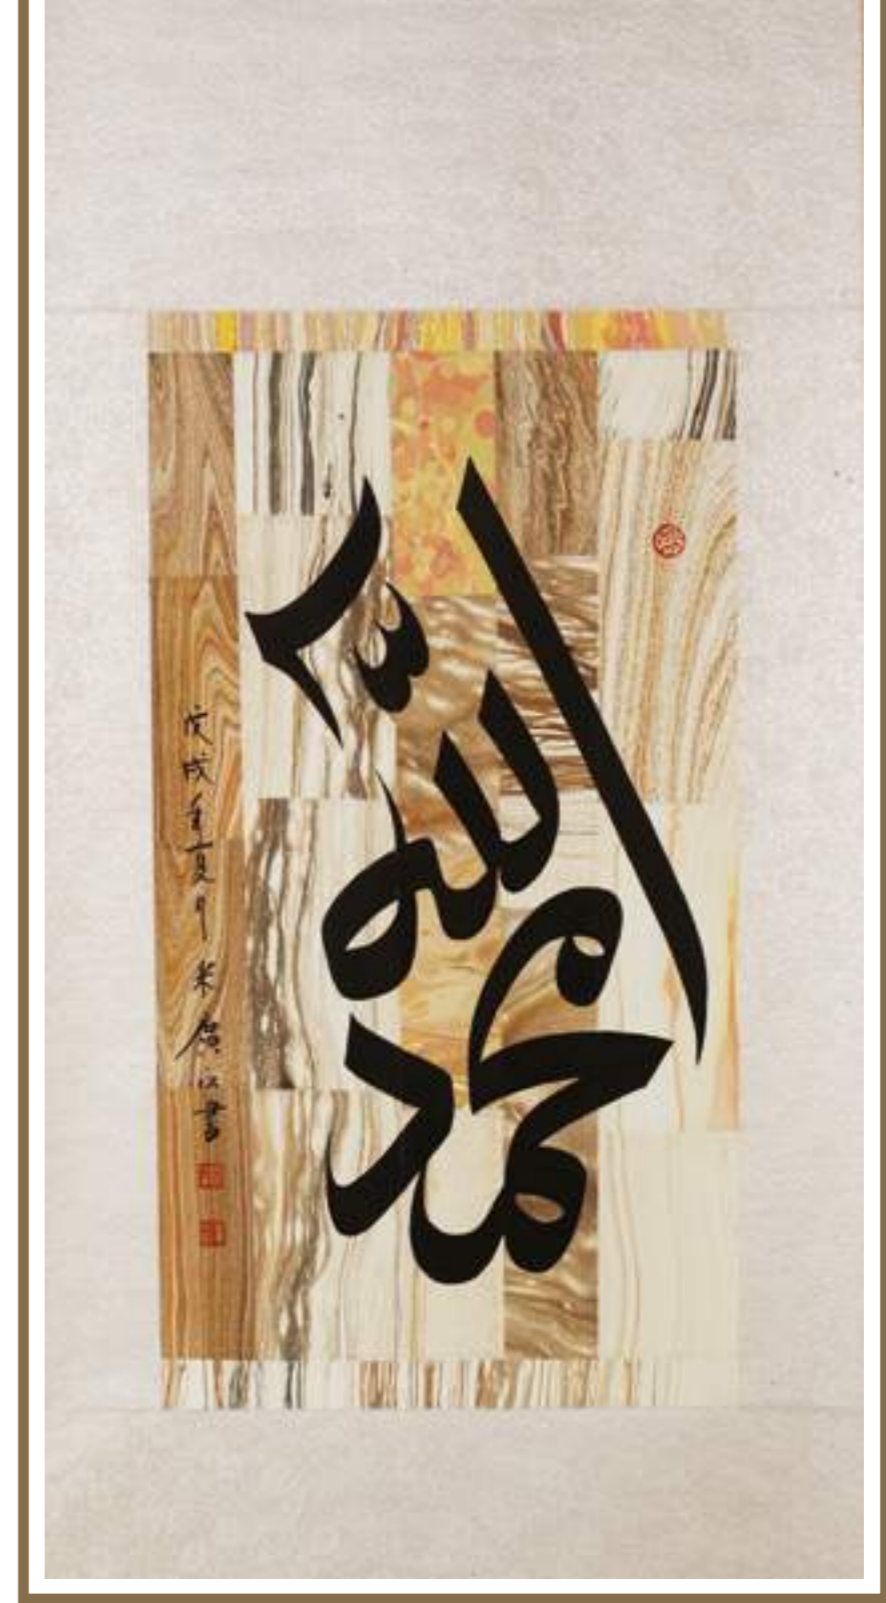 الله
محمد
戊戌年夏月 米廣江書